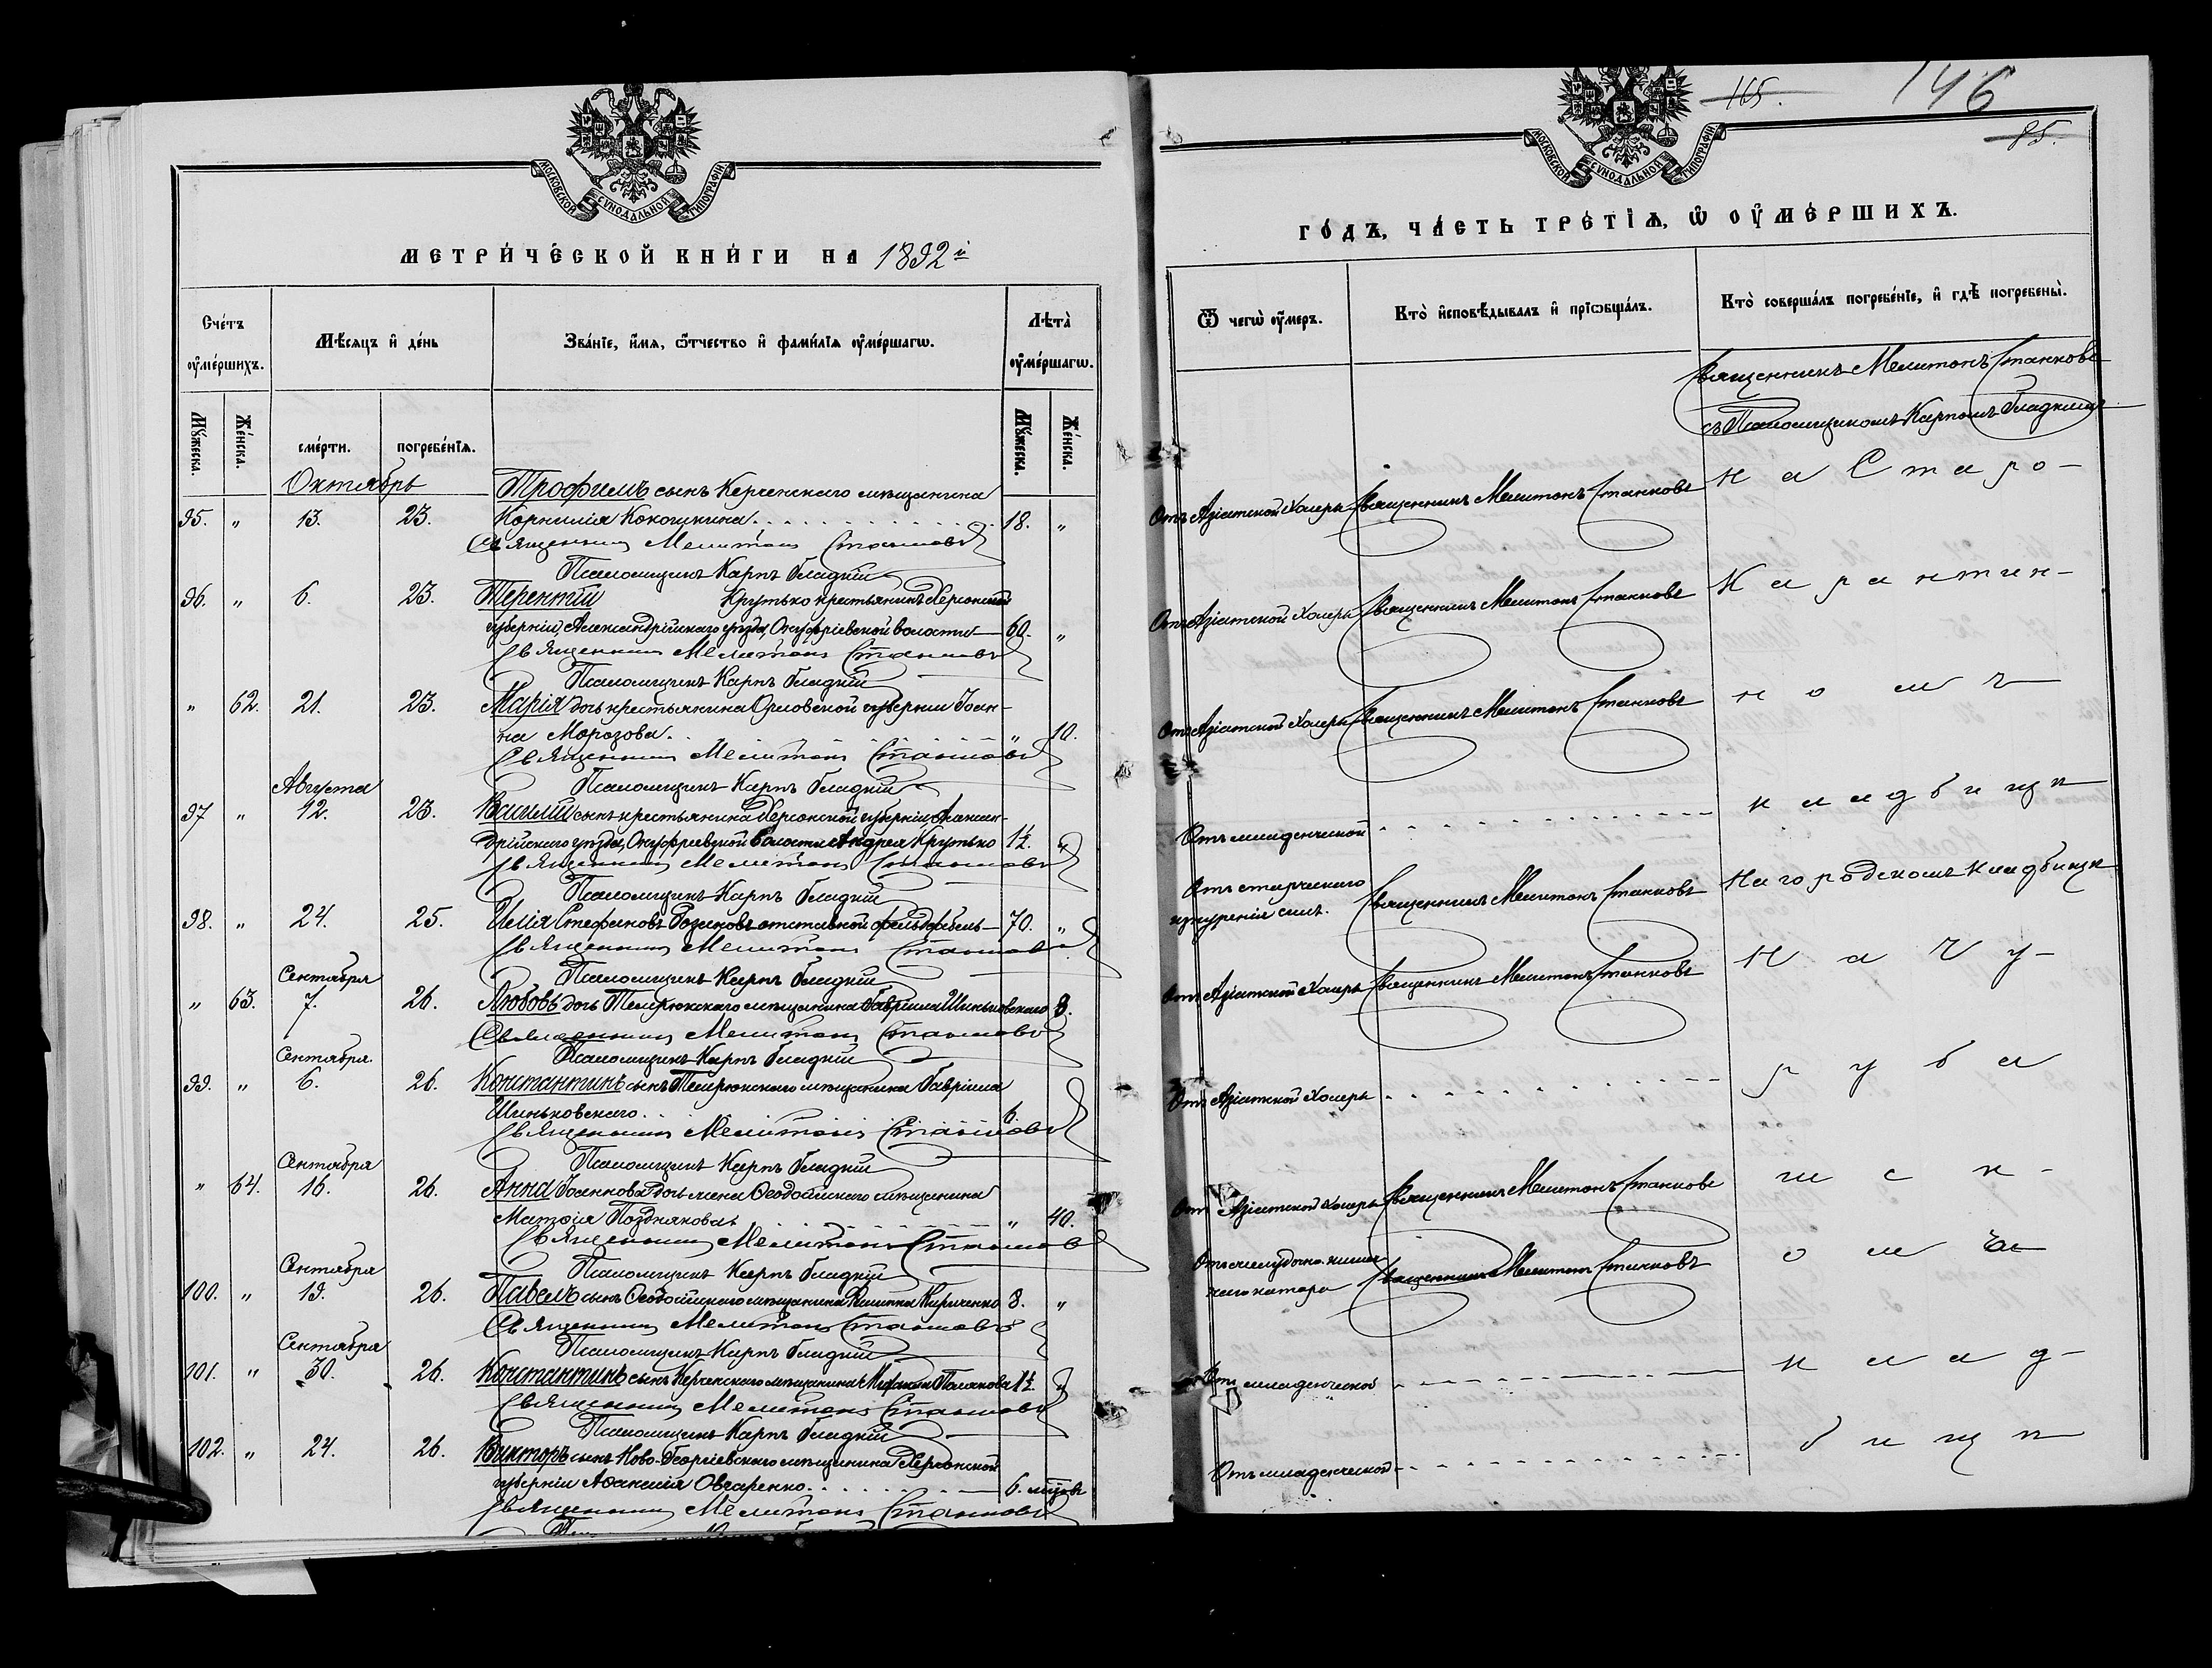 МОСКОВСКОЙ СУНОДАЛЬНОЙ ТИПОГРАФІИ
МЕТРИ́ЧЕСКОЙ КНИ́ГИ НА 1892й
Сче́тъ ᲂу҆ме́ршихъ.
Мѣ́сяцъ и҆ де́нь
Зва́нїе, и҆́мя, ѻ҆́тчество и҆ фами́лїя ᲂу҆ме́ршагѡ.
Лѣ́та ᲂу҆ме́ршагѡ.
Мꙋ́жеска.
Же́нска.
сме́рти.
погребе́нїя.
Мꙋ́жеска.
Же́нска.
Октябрь
Трофимъ сынъ Керченскаго мѣщанина
95. " 13. 23. Корнилія Кокошкина 18. "
Священникъ Мелитонъ Станковъ
Псаломщикъ Карпъ Гладкій
96. " 6. 23. Терентій Крутько крестьянинъ Херсонской
губерніи, Александрійскаго уѣзда, Онуфріевской волости 60. "
Священникъ Мелитонъ Станковъ
Псаломщикъ Карпъ Гладкій
" 62. 21. 23. Марія дочь крестьянина Орловской губерніи Іоан-
на Морозова " 10.
Священникъ Мелитонъ Станковъ
Псаломщикъ Карпъ Гладкій
Августа
97 " 12. 23. Василій сынъ крестьянина Херсонской губерніи Алексан-
дрійскаго уѣзда, Онуфріевской волости Андрея Крутько 1½. "
Священникъ Мелитонъ Станковъ
Псаломщикъ Карпъ Гладкій
98. " 24. 25. Илія Стефановъ отставной фельдфебель 70. "
Священникъ Мелитонъ Станковъ
Псаломщикъ Карпъ Гладкій
Сентября
" 63. 7. 26. Любовь дочь Темрюкскаго мѣщанина Гавріила Шиньковскаго 8.
Священникъ Мелитонъ Станковъ
Псаломщикъ Карпъ Гладкій
Сентября.
99. " 6. 26. Константинъ сынъ Темрюкскаго мѣщанина Гавріила
Шиньковскаго 6.
Священникъ Мелитонъ Станковъ
Псаломщикъ Карпъ Гладкій
Сентября
" 64. 16. 26. Анна Іоаннова дочь жена Ѳеодосійскаго мѣщанина
Матѳія Позднякова " 40.
Священникъ Мелитонъ Станковъ
Псаломщикъ Карпъ Гладкій
Сентября
100. " 19. 26. Павелъ сынъ Ѳеодосійскаго мѣщанина Кириченко 8. "
Священникъ Мелитонъ Станковъ
Псаломщикъ Карпъ Гладкій
Сентября
101. " 30. 26. Константинъ сынъ Керченскаго мѣщанина Полякова 1½. "
Священникъ Мелитонъ Станковъ
Псаломщикъ Карпъ Гладкій
102. " 24. 26. Викторъ сынъ Ново-Георгіевскаго мѣщанина Херсонской
губерніи Аѳанасія Овчаренко 6. мѣсяц.
Священникъ Мелитонъ Станковъ
МОСКОВСКОЙ СУНОДАЛЬНОЙ ТИПОГРАФІИ
165.
146
85.
ГО́ДЪ, ЧА́СТЬ ТРЕ́ТІѦ, Ѡ҆ ОУ҆МЕ́РШИХЪ.
Ѿ чегѡ̀ ᲂу҆́меръ.
Кто̀ и҆сповѣ́дывалъ и҆ прїѡбща́лъ.
Кто̀ соверша́лъ погребе́нїе, и҆ гдѣ̀ погребены̀.
Священникъ Мелитонъ Станковъ
съ Псаломщикомъ Карпомъ Гладкимъ
Отъ Азіатской Холеры Священникъ Мелитонъ Станковъ На Старо-
Отъ Азіатской Холеры Священникъ Мелитонъ Станковъ Карантин-
Отъ Азіатской Холеры Священникъ Мелитонъ Станковъ номъ
Отъ младенческой кладбищѣ
Отъ старческаго
изнуренія силъ. Священникъ Мелитонъ Станковъ На городскомъ кладбищѣ
Отъ Азіатской Холеры Священникъ Мелитонъ Станковъ На Чу-
Отъ Азіатской Холеры руба
Отъ Азіатской Холеры Священникъ Мелитонъ Станковъ шск-
Отъ желудочно-кишеч
наго катара Священникъ Мелитонъ Станковъ омъ
Отъ младенческой клад-
Отъ младенческой бищѣ